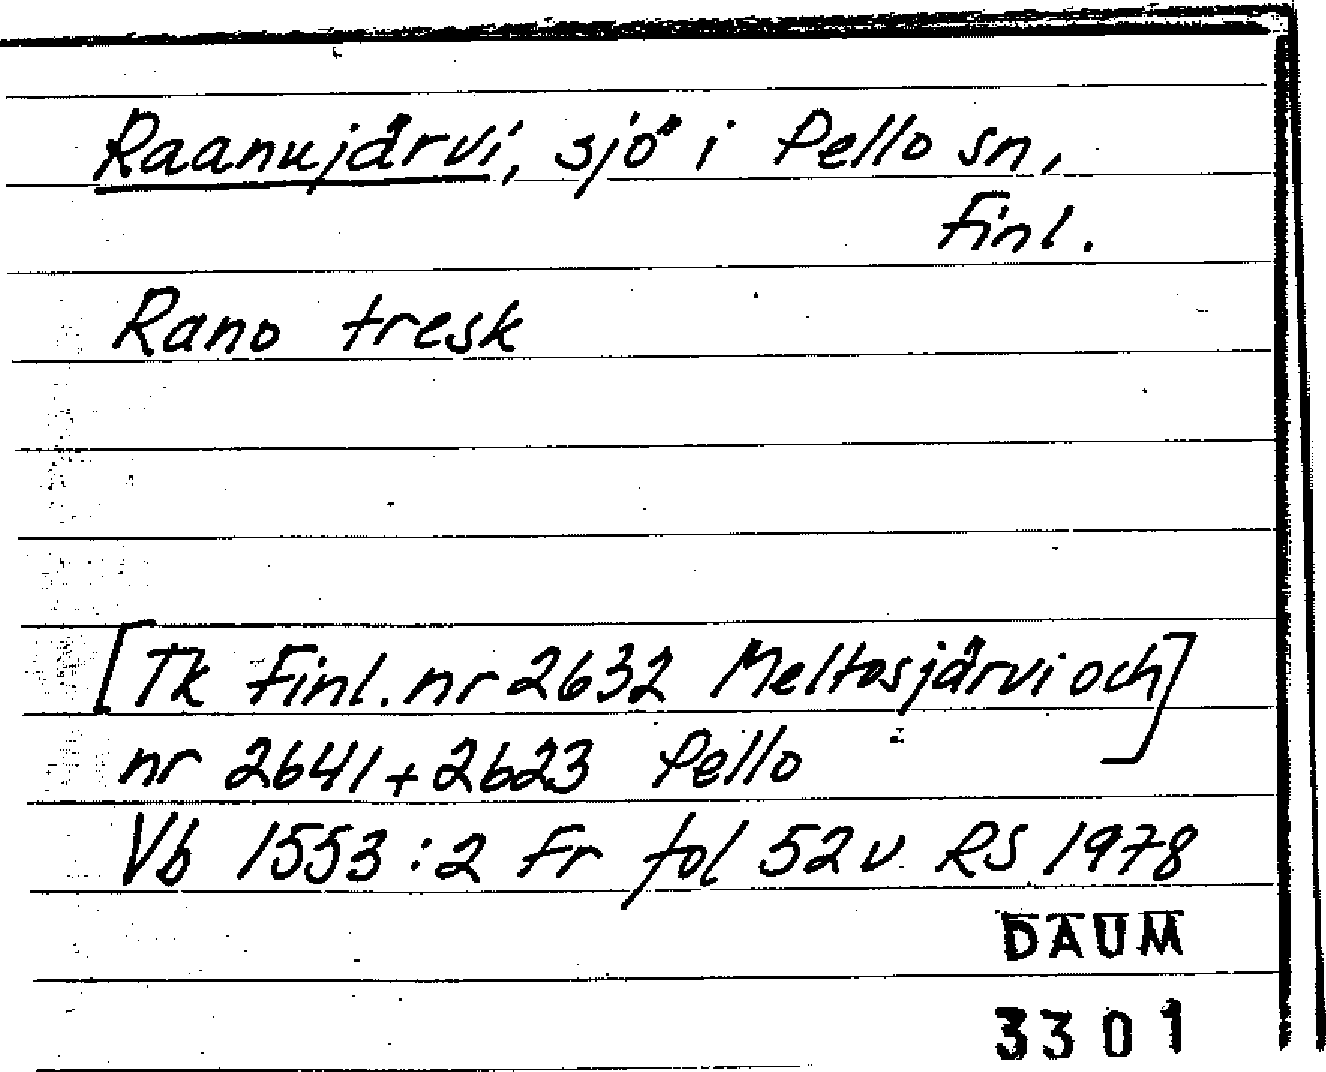 Raanujärvi, sjö i Pello sn,
Finl.
Rano tresk
[Tk Finl. nr 2632 Meltosjärvi och]
nr 2641+2623 Pello
Vb 1553:2 Fr fol 52v RS 1978
DAUM
3301